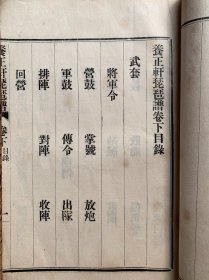 養正軒琵琶譜卷下目錄
武套
將軍令
營鼓 掌號 放炮
軍鼓 傳令 出隊
排陣 對陣 收陣
回營
養正軒琵琶譜 卷下 目錄 一